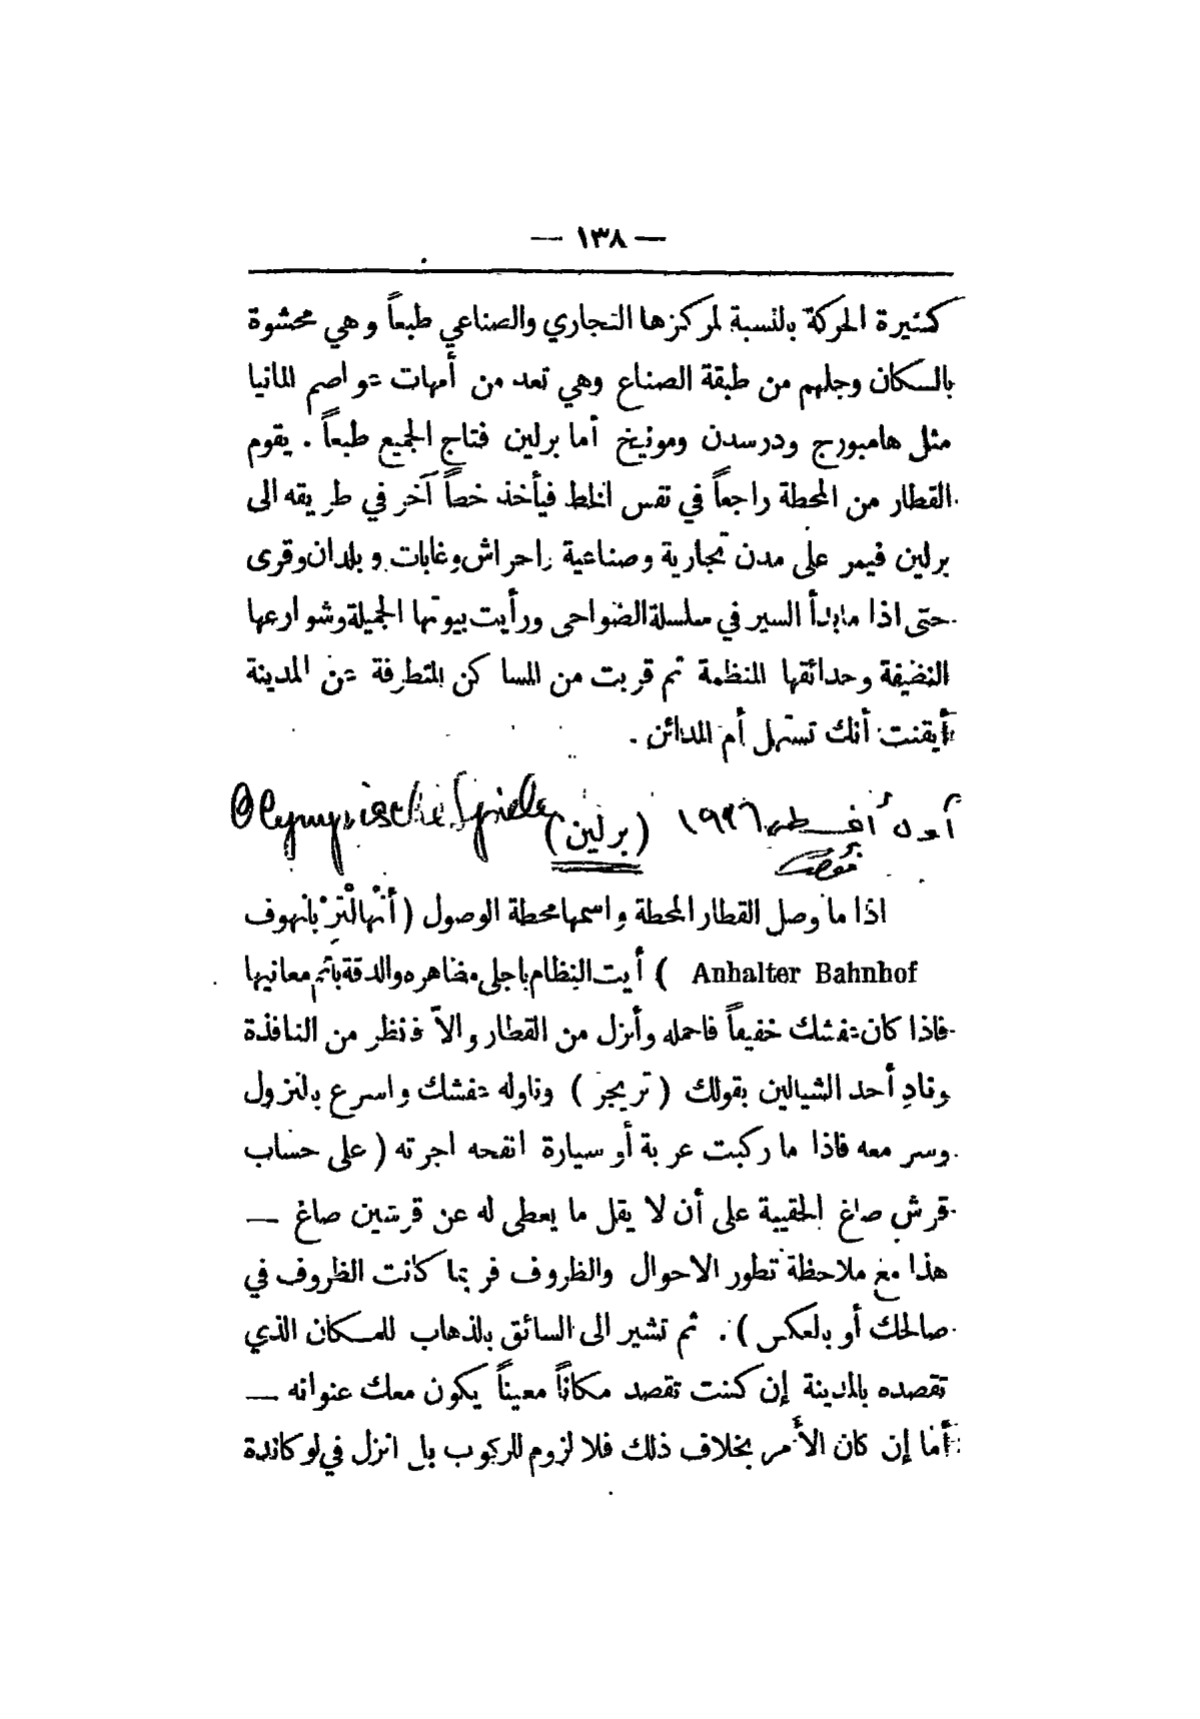 — ١٣٨ —
كثيرة الحركة بالنسبة لمركزها التجاري والصناعي طبعاً وهي محشوة
بالسكان وجلهم من طبقة الصناع وهي تعد من أمهات عواصم المانيا
مثل هامبورج ودرسدن ومونيخ أما برلين فتاج الجميع طبعاً . يقوم
القطار من المحطة راجعاً في نفس الخط فيأخذ خطاً آخر في طريقه الى
برلين فيمر على مدن تجارية وصناعية واحراش وغابات وبلدان وقرى
حتى اذا ما بدأ السير في سلسلة الضواحى ورأيت بيوتها الجميلة وشوارعها
النضيفة وحدائقها المنظمة ثم قربت من المساكن المتطرفة عن المدينة
أيقنت أنك تستهل أم المدائن .
أغسطس ١٩٣٦ (برلين) Olympische Spiele
اذا ما وصل القطار المحطة واسمها محطة الوصول ( أنْهالْتِرْ بانهوف
Anhalter Bahnhof ) أيت النظام باجلى مضاهره والدقة بأتم معانيها
فاذا كان عفشك خفيفاً فاحمله وأنزل من القطار والاّ فنظر من النافذة
ونادِ أحد الشيالين بقولك ( تريجر ) وناوله عفشك واسرع بالنزول
وسر معه فاذا ما ركبت عربة أو سيارة انقحه اجرته ( على حساب
قرش صاغ الحقيبة على أن لا يقل ما يعطى له عن قرشين صاغ —
هذا مع ملاحظة تطور الاحوال والظروف فربما كانت الظروف في
صالحك أو بالعكس ) . ثم تشير الى السائق بالذهاب للمكان الذي
تقصده بالمدينة إن كنت تقصد مكاناً معيناً يكون معك عنوانه —
أما إن كان الأمر بخلاف ذلك فلا لزوم للركوب بل انزل في لوكاندة